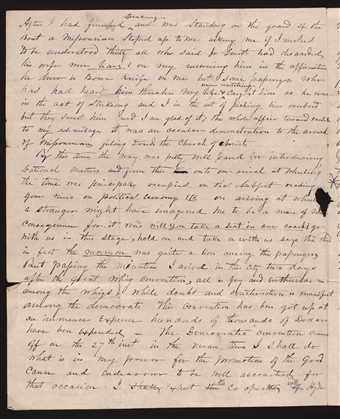 dinner
After I had finished and was standing on the guard of the
Boat a Missourian Stepped up to me asking me if I wished
to be understood that all who said Jo Smith had deceased,
his wife were liars I on my answering him in the affirmative
he drew is Bowie Knife on Me but some passengers who
was watching
has had heard him threaten My life caught him as he was
in the act of Striking and I in the act of pitching him overbord
but they saved him and I am glad of it, the whole affair turned out
to my advantage it was an occular demonstration to the crowd
of Missourians feeling towards the Church of Christ.
By this time the way was pretty well paved for introducing
National Matters and from this time unto our arrival at Wheeling
the time was principally occupied on that Subject reading
your views on political Economy &c on ariving at Wheeling
a stranger might have imagined Me to be a man of
consequence for it was will you take a seat in our coach go
with us in this Stage, hold on and take a with us says the
in fact the mormon was quite a lion among the passengers
But passing the Minutia I arived in this City two days
after the great Whig Convention, all is joy and enthusiasm
among the whigs While doubt and disthonation is manifest
among the democrats This Convention has been got up at
an immense Expence hundreds of thousands of Dollars
have been Expended The Democratic convention comes
off on the 27th inst in the mean time I shall do
what is in my power for the promotion of the Good
Cause and Endeavour to be well accounted for
that occasion I shall Expect the Co opperation of Hyde